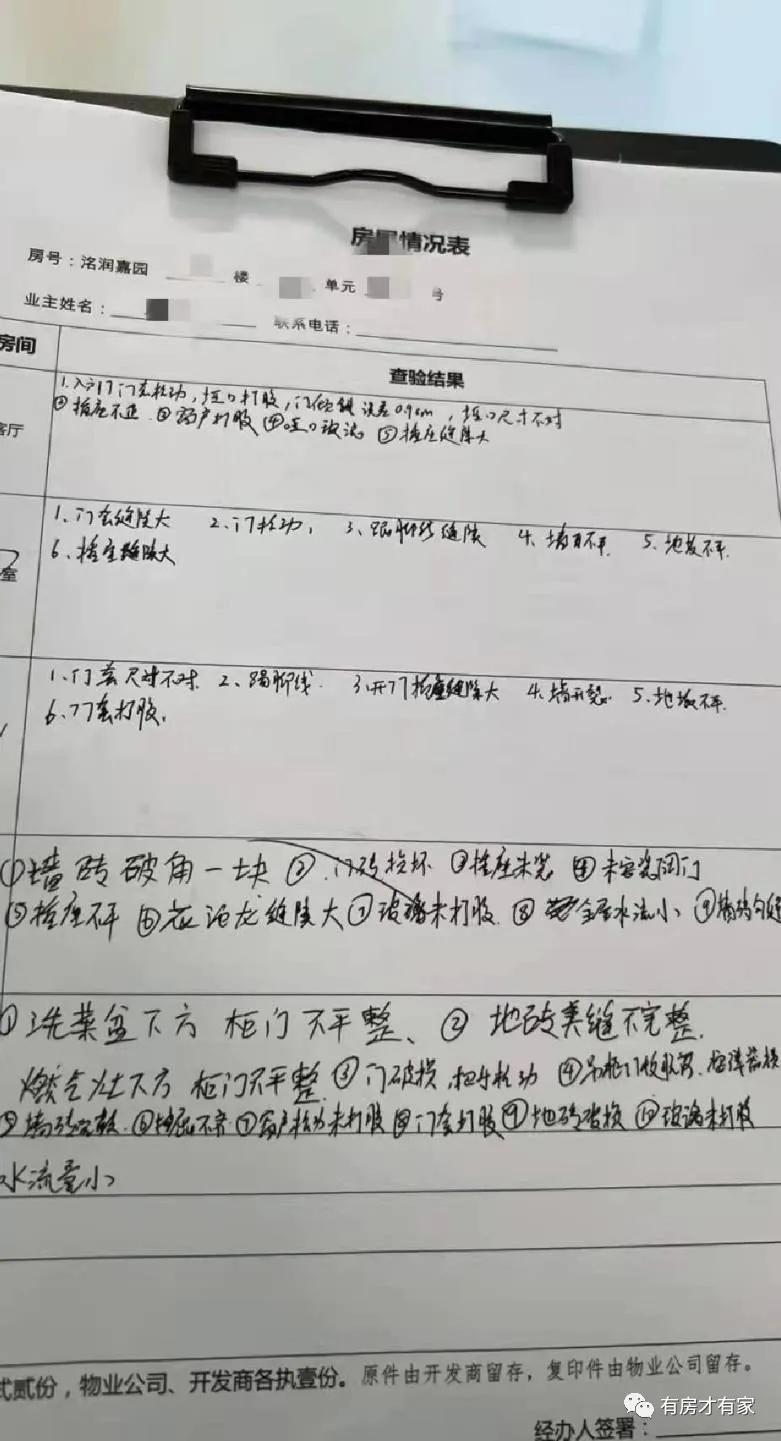 房屋情况表
房号：洺润嘉园 楼 单元 号
业主姓名： 联系电话：
房间 查验结果
1.入户门门套松动，垭口打胶，门倾斜误差0.9cm，垭口尺寸不对
客厅
②插座不正 ③窗户打胶 ④垭口破浅 ⑤插座缝隙大
1、门套缝隙大 2、门松动， 3、踢脚线缝隙 4、墙不平 5、地板不平.
室 6、插座缝隙大
1、门套尺寸不对 2、踢脚线. 3、开门插座缝隙大 4、墙开裂 5、地板不平.
6、门套打胶.
①墙砖破角一块 ② 门砖损坏 ③插座未装 ④未安装闭门
⑤插座不平 ⑥花洒龙缝隙大 ⑦玻璃未打胶 ⑧ 全屋水流小 ⑨墙砖勾缝
①洗菜盆下方柜门不平整、② 地砖美缝不完整.
燃气灶下方柜门不平整 ③门破损，把手松动 ④吊柜门
⑤墙砖空鼓 ⑥ 不齐 ⑦窗户松动未打胶 ⑧门套打胶 ⑨地砖破损 ⑩玻璃未打胶
水流量小
式贰份，物业公司、开发商各执壹份。原件由开发商留存，复印件由物业公司留存。
有房才有家
经办人签署：